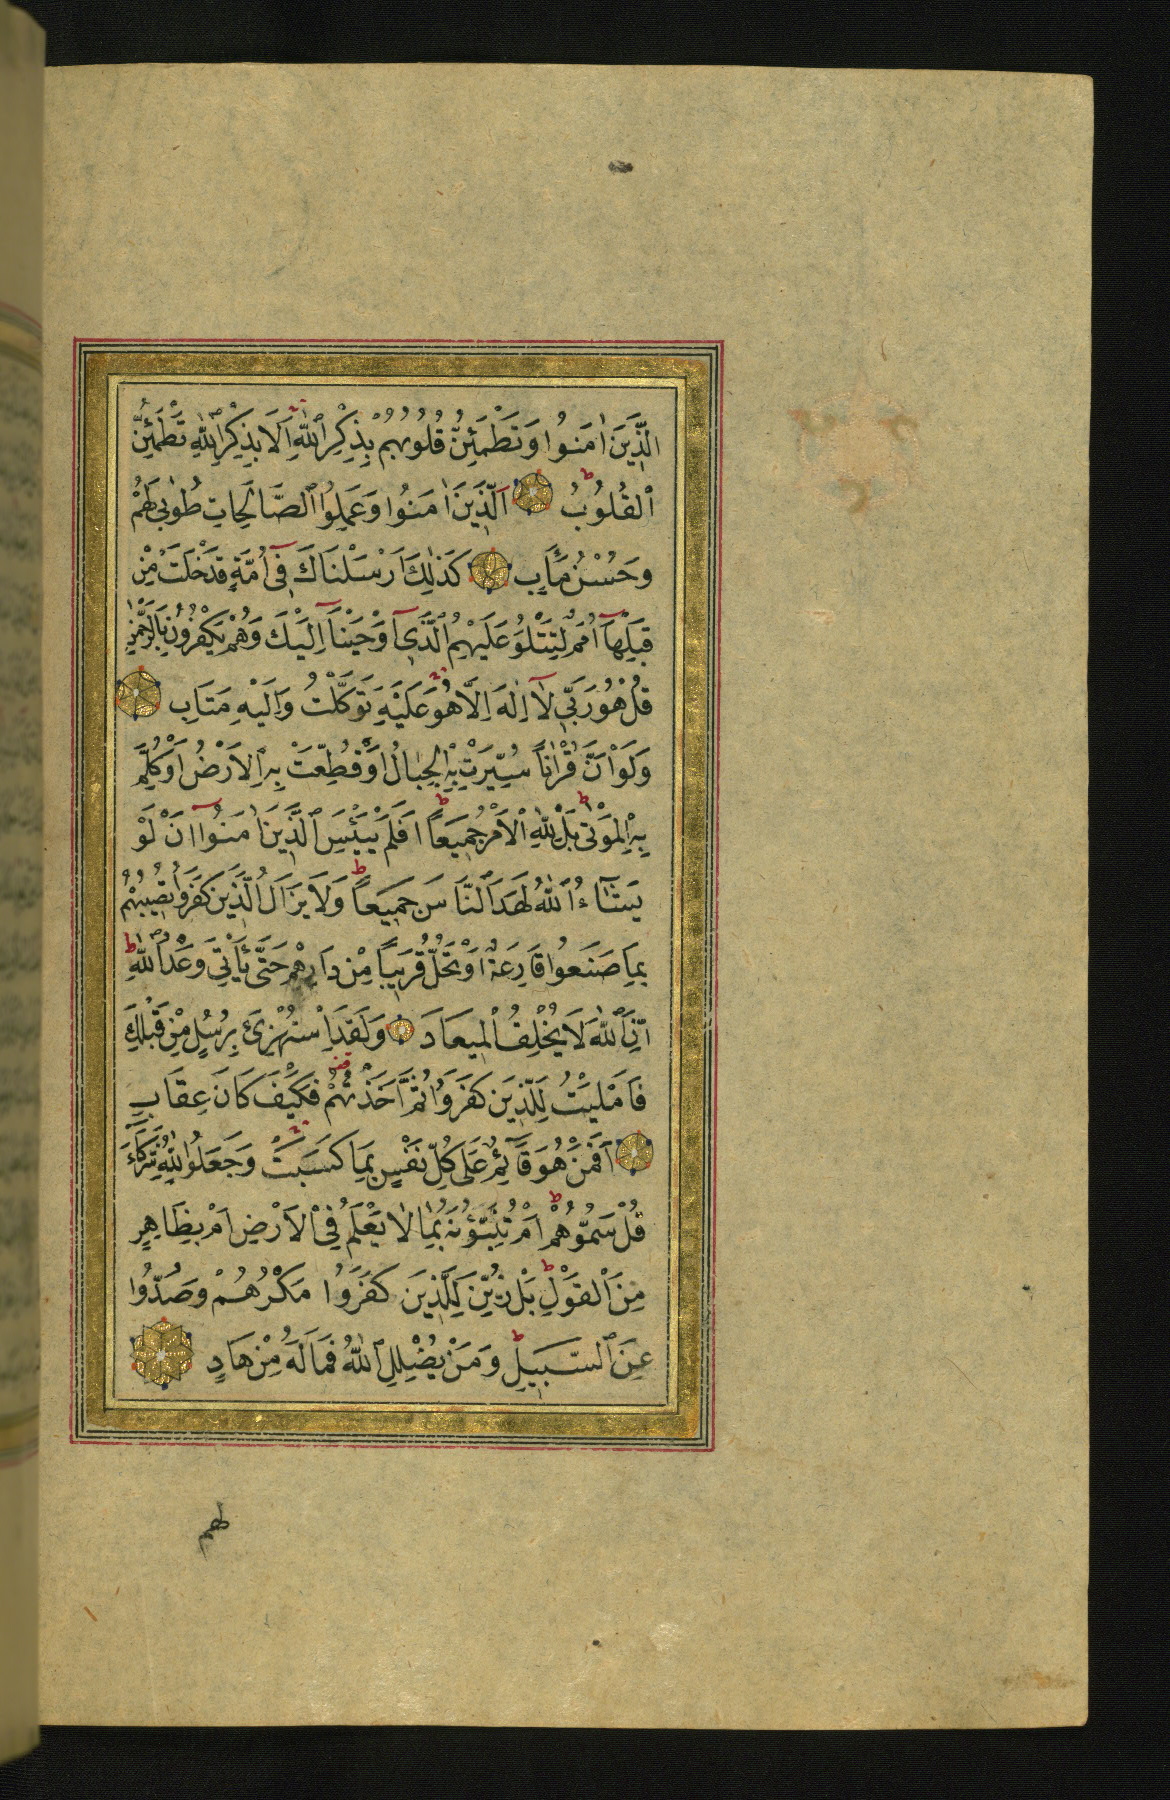 الَّذِينَ اٰمَنُوا وَتَطْمَئِنُّ قُلُوبُهُمْ بِذِكْرِ اللّٰهِ اَلَا بِذِكْرِ اللّٰهِ تَطْمَئِنُّ
الْقُلُوبُ اَلَّذِينَ اٰمَنُوا وَعَمِلُوا الصَّالِحَاتِ طُوبٰى لَهُمْ
وَحُسْنُ مَاٰبٍ كَذٰلِكَ اَرْسَلْنَاكَ فِى اُمَّةٍ قَدْ خَلَتْ مِنْ
قَبْلِهَا اُمَمٌ لِتَتْلُوَ عَلَيْهِمُ الَّذِى اَوْحَيْنَا اِلَيْكَ وَهُمْ يَكْفُرُونَ بِالرَّحْمٰنِ
قُلْ هُوَ رَبِّى لَا اِلٰهَ اِلَّا هُوَ عَلَيْهِ تَوَكَّلْتُ وَاِلَيْهِ مَتَابِ
وَلَوْ اَنَّ قُرْاٰناً سُيِّرَتْ بِهِ الْجِبَالُ اَوْ قُطِّعَتْ بِهِ الْاَرْضُ اَوْ كُلِّمَ
بِهِ الْمَوْتٰى بَلْ لِلّٰهِ الْاَمْرُ جَمِيعاً اَفَلَمْ يَيْئَسِ الَّذِينَ اٰمَنُوا اَنْ لَوْ
يَشَاءُ اللّٰهُ لَهَدَى النَّاسَ جَمِيعاً وَلَا يَزَالُ الَّذِينَ كَفَرُوا تُصِيبُهُمْ
بِمَا صَنَعُوا قَارِعَةٌ اَوْ تَحُلُّ قَرِيباً مِنْ دَارِهِمْ حَتّٰى يَأْتِىَ وَعْدُ اللّٰهِ
اِنَّ اللّٰهَ لَا يُخْلِفُ الْمِيعَادَ وَلَقَدِ اسْتُهْزِئَ بِرُسُلٍ مِنْ قَبْلِكَ
فَاَمْلَيْتُ لِلَّذِينَ كَفَرُوا ثُمَّ اَخَذْتُهُمْ فَكَيْفَ كَانَ عِقَابِ
اَفَمَنْ هُوَ قَائِمٌ عَلٰى كُلِّ نَفْسٍ بِمَا كَسَبَتْ وَجَعَلُوا لِلّٰهِ شُرَكَاءَ
قُلْ سَمُّوهُمْ اَمْ تُنَبِّؤُنَهُ بِمَا لَا يَعْلَمُ فِى الْاَرْضِ اَمْ بِظَاهِرٍ
مِنَ الْقَوْلِ بَلْ زُيِّنَ لِلَّذِينَ كَفَرُوا مَكْرُهُمْ وَصُدُّوا
عَنِ السَّبِيلِ وَمَنْ يُضْلِلِ اللّٰهُ فَمَا لَهُ مِنْ هَادٍ
لهم